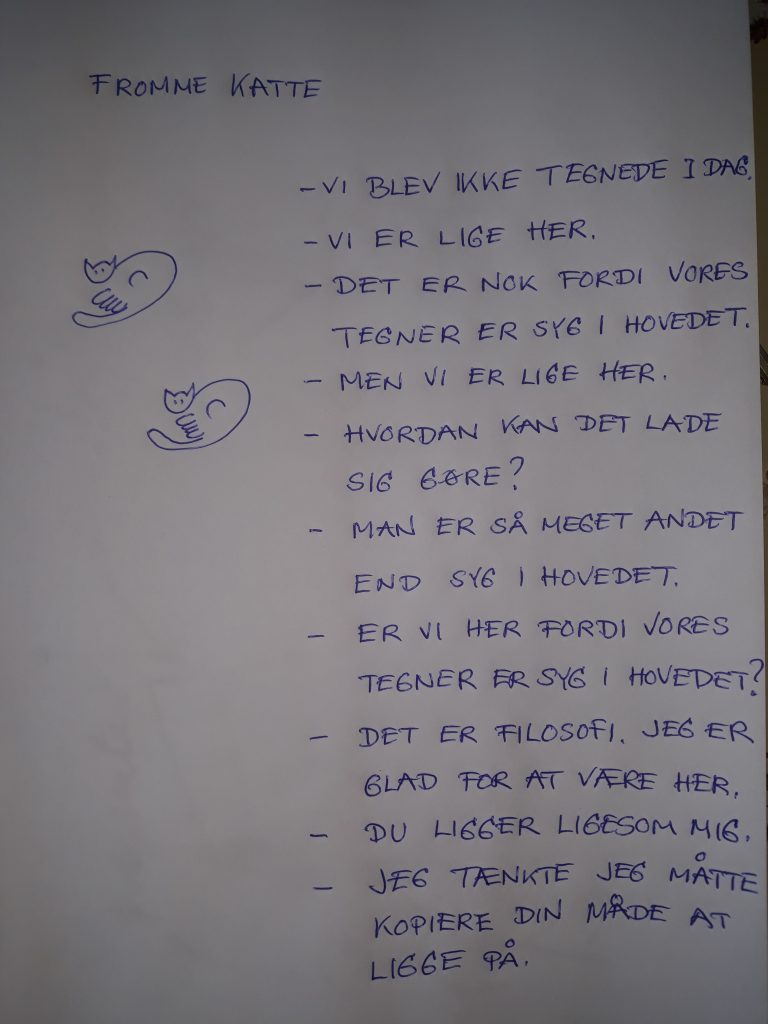 FROMME KATTE
- VI BLEV IKKE TEGNEDE I DAG.
- VI ER LIGE HER.
- DET ER NOK FORDI VORES
TEGNER ER SYG I HOVEDET.
- MEN VI ER LIGE HER.
- HVORDAN KAN DET LADE
SIG GØRE?
- MAN ER SÅ MEGET ANDET
END SYG I HOVEDET.
- ER VI HER FORDI VORES
TEGNER ER SYG I HOVEDET?
- DET ER FILOSOFI. JEG ER
GLAD FOR AT VÆRE HER.
- DU LIGGER LIGESOM MIG.
- JEG TÆNKTE JEG MÅTTE
KOPIERE DIN MÅDE AT
LIGGE PÅ.